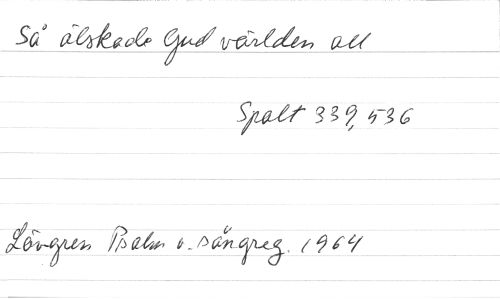 Så älskade Gud världen all
Spalt 339, 536
Lövgren Psalm o. sångreg. 1964